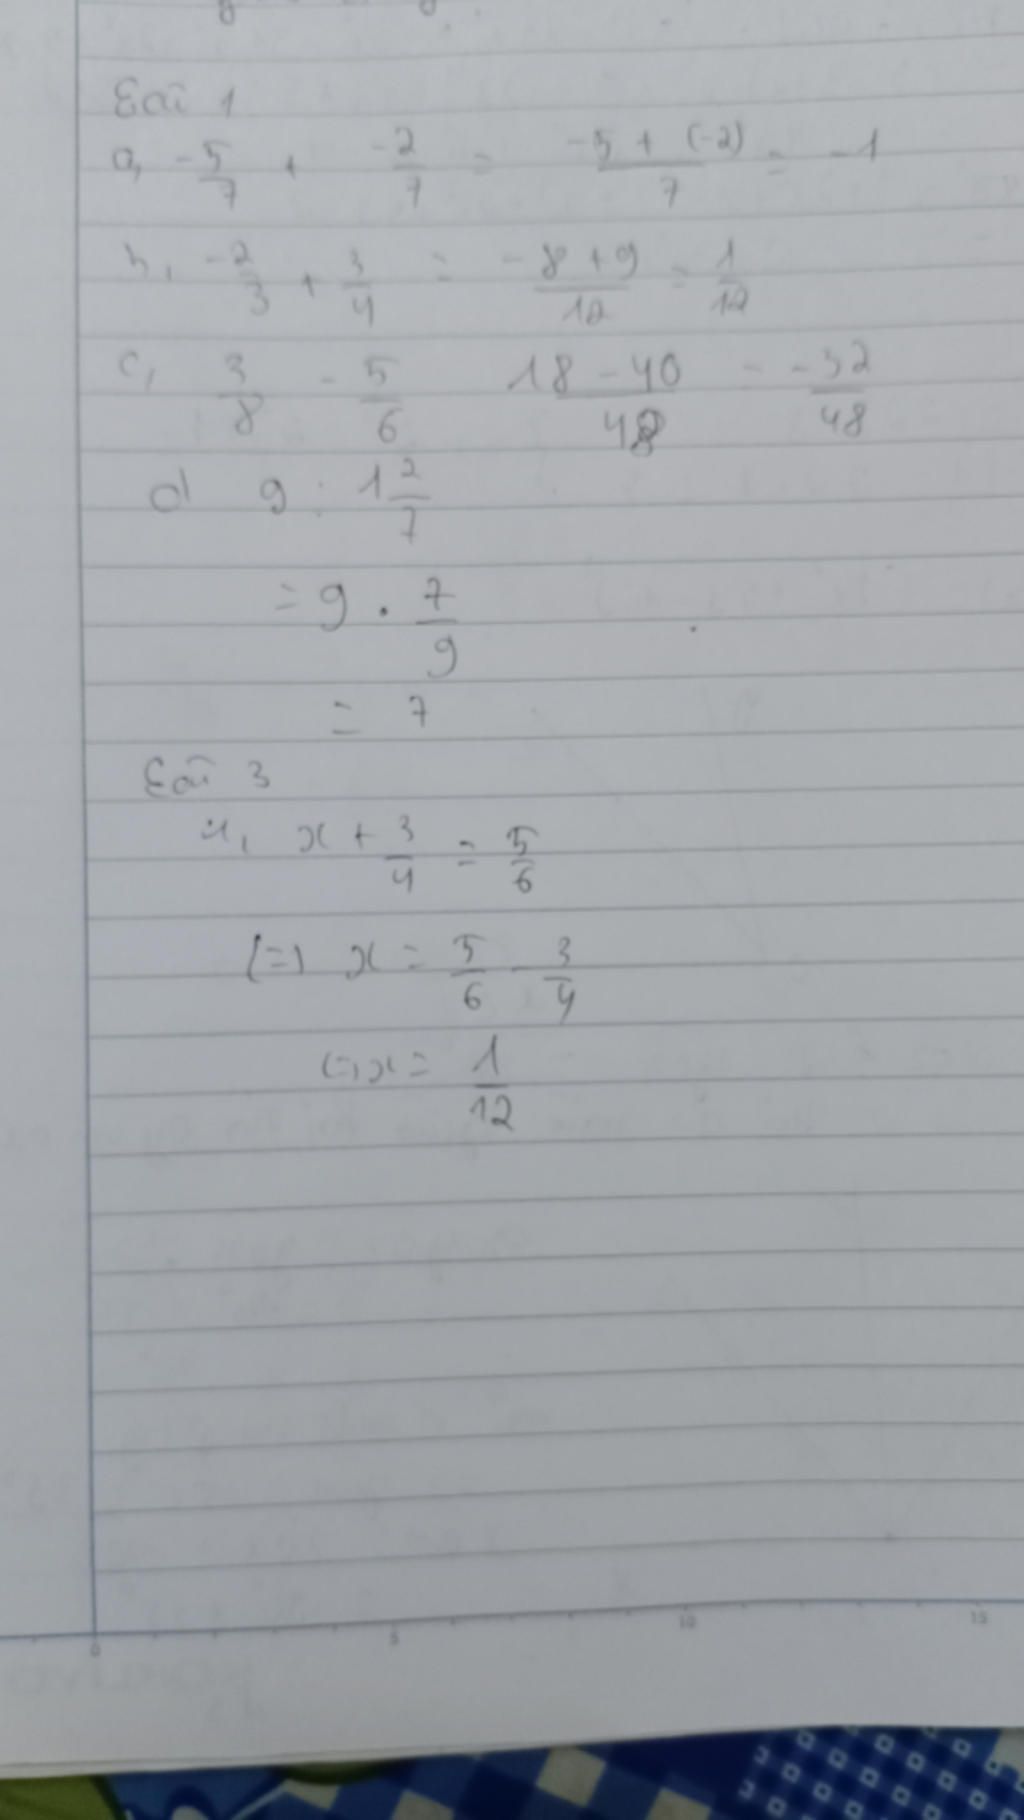 Bài 1
a, -5/7 + -2/7 = -5 + (-2)/7 = -1
b, -2/3 + 3/4 = -8 + 9/12 = 1/12
c, 3/8 - 5/6 18 - 40/48 = -32/48
d 9 : 1 2/7
= 9 . 7/9
= 7
Bài 3
a, x + 3/4 = 5/6
(=) x = 5/6 - 3/4
(=) x = 1/12
0 5 10 15